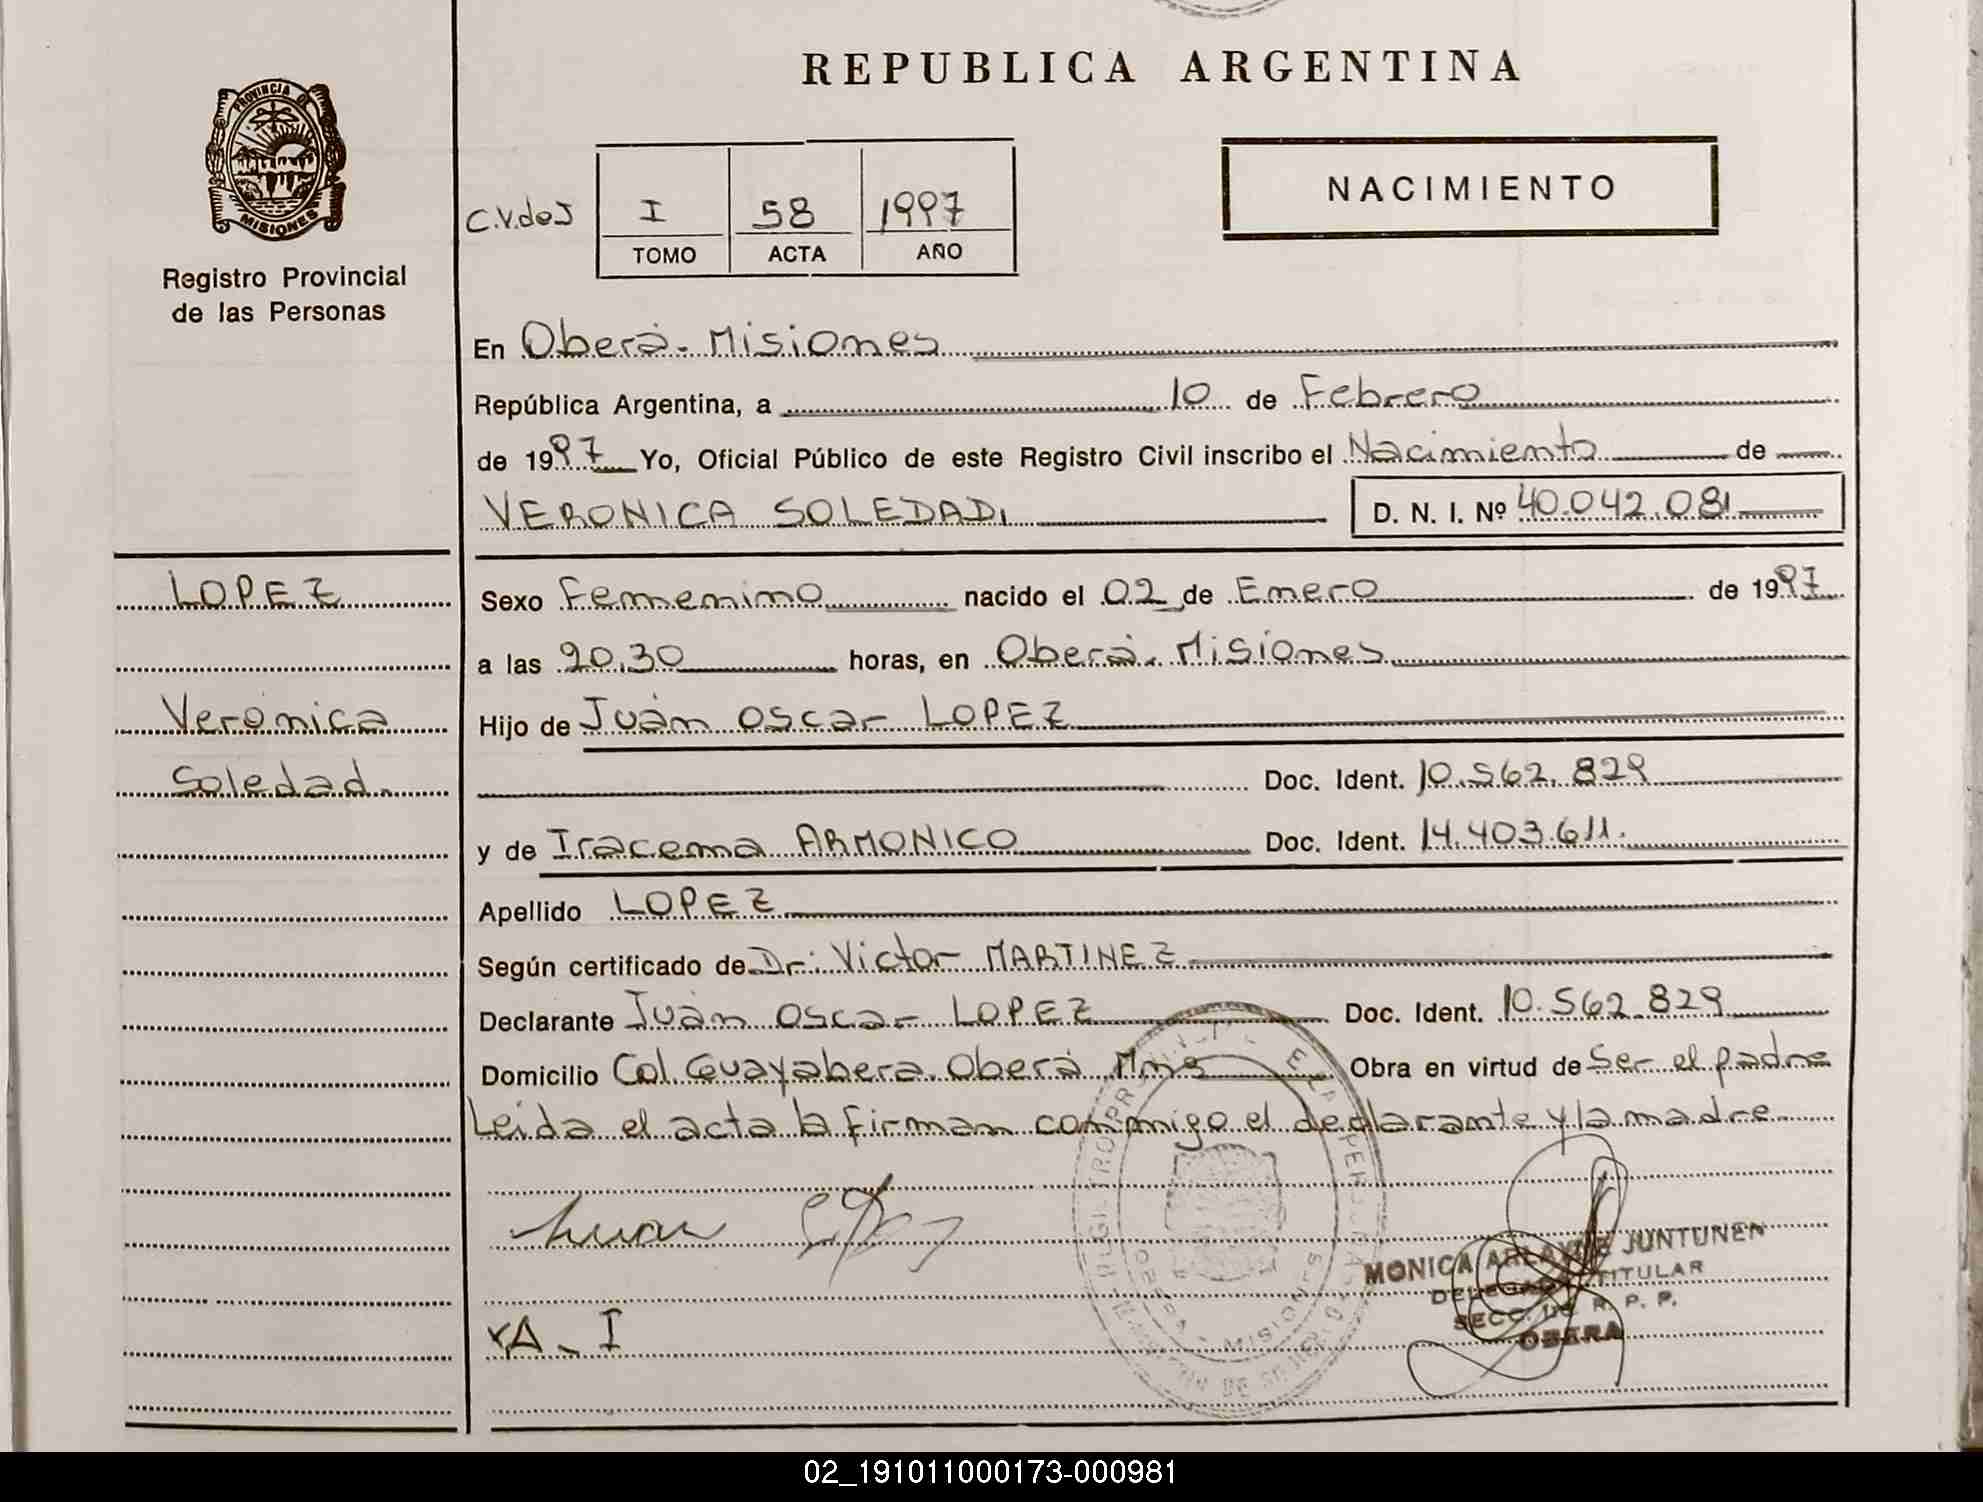 REPUBLICA ARGENTINA
PROVINCIA DE
MISIONES
Registro Provincial
de las Personas
C.V.deJ
I 58 1997
TOMO ACTA AÑO
NACIMIENTO
En Oberá - Misiones
República Argentina, a 10 de Febrero
de 1997 Yo, Oficial Público de este Registro Civil inscribo el Nacimiento de
VERONICA SOLEDAD,
D. N. I. Nº 40.042.081
LOPEZ
Veronica
Soledad.
Sexo Femenino nacido el 02 de Enero de 1997
a las 20.30 horas, en Oberá. Misiones
Hijo de Juan Oscar LOPEZ
Doc. Ident. 10.562.829
y de Iracema ARMONICO Doc. Ident. 14.403.611.
Apellido LOPEZ
Según certificado de Dr: Victor MARTINEZ
Declarante Juan Oscar LOPEZ Doc. Ident. 10.562.829
Domicilio Col. Guayabera. Oberá Mns Obra en virtud de Ser el padre
Leida el acta la firman conmigo el declarante y la madre
XA_I
MONICA JUNTUNEN
TITULAR
SECC. R. P. P.
OBERA
OBERA - MISIONES
02_191011000173-000981